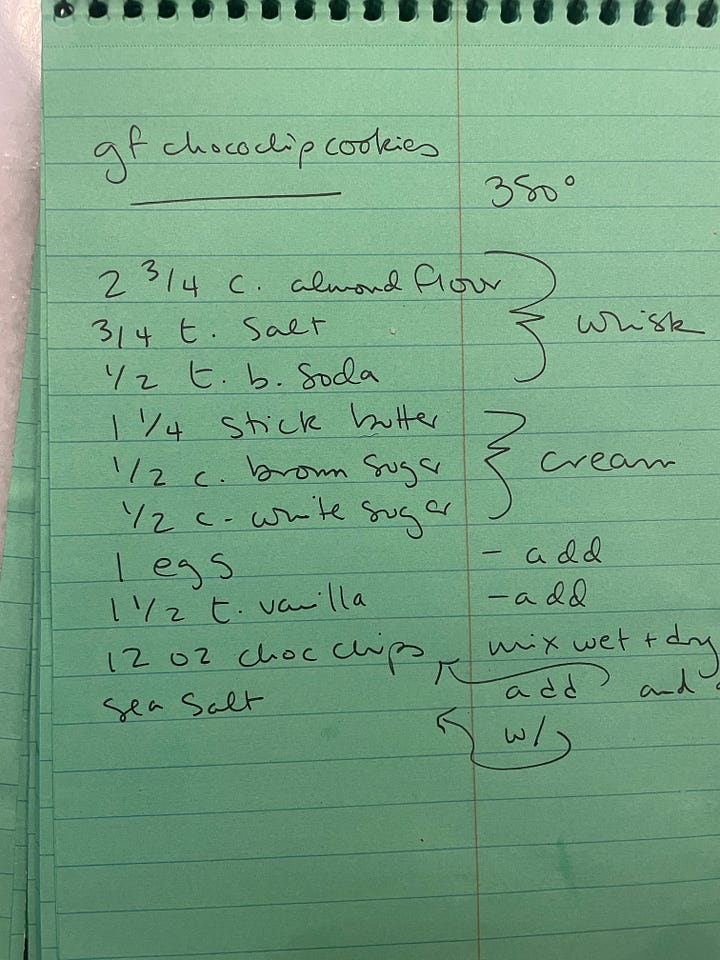 gf chocochip cookies
350°
2 3/4 c. almond flour
whisk
3/4 t. Salt
1/2 t. b. Soda
1 1/4 stick butter
1/2 c. brown Sugar
cream
1/2 c - white sugar
1 egg - add
1 1/2 t. vanilla - add
12 oz choc chips mix wet + dry
Sea Salt add and
w/